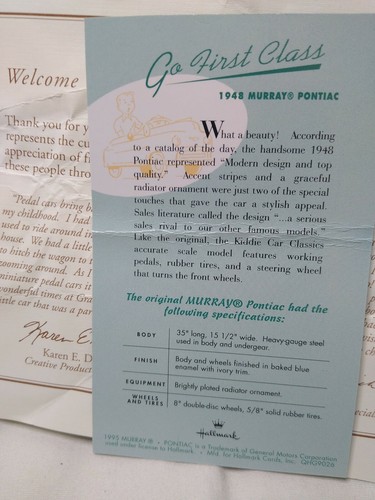 Go First Class
1948 MURRAY® PONTIAC
What a beauty! According
to a catalog of the day, the handsome 1948
Pontiac represented "Modern design and top
quality." Accent stripes and a graceful
radiator ornament were just two of the special
touches that gave the car a stylish appeal.
Sales literature called the design "...a serious
sales rival to our other famous models."
Like the original, the Kiddie Car Classics
accurate scale model features working
pedals, rubber tires, and a steering wheel
that turns the front wheels.
The original MURRAY® Pontiac had the
following specifications:
BODY 35" long, 15 1/2" wide. Heavy-gauge steel
used in body and undergear.
FINISH Body and wheels finished in baked blue
enamel with ivory trim.
EQUIPMENT Brightly plated radiator ornament.
WHEELS
AND TIRES 8" double-disc wheels, 5/8" solid rubber tires.
Hallmark
1995 MURRAY® • PONTIAC is a Trademark of General Motors Corporation
used under license to Hallmark. • Mfd. for Hallmark Cards, Inc. QHG9026
Welcome
Thank you for
represents the
appreciation of
these people
"Pedal cars bring
my childhood. I had
used to ride around
house. We had a little
to hitch the wagon to
zooming around. As I
miniature pedal cars
wonderful times at
little car that was a
Karen E.
Karen E. D
Creative